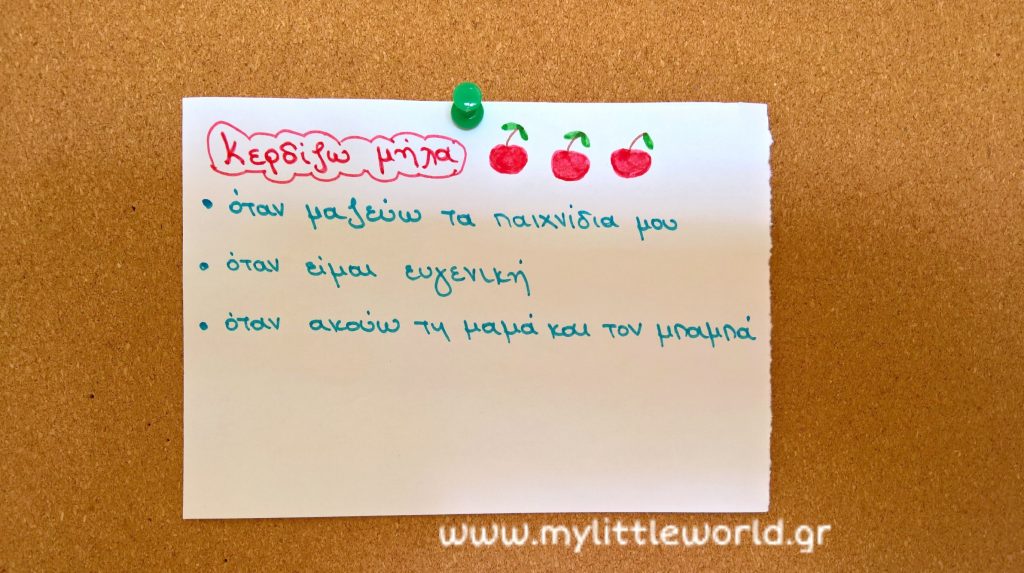 Κερδίζω μήλα
• όταν μαζεύω τα παιχνίδια μου
• όταν είμαι ευγενική
• όταν ακούω τη μαμά και τον μπαμπά
www.mylittleworld.gr